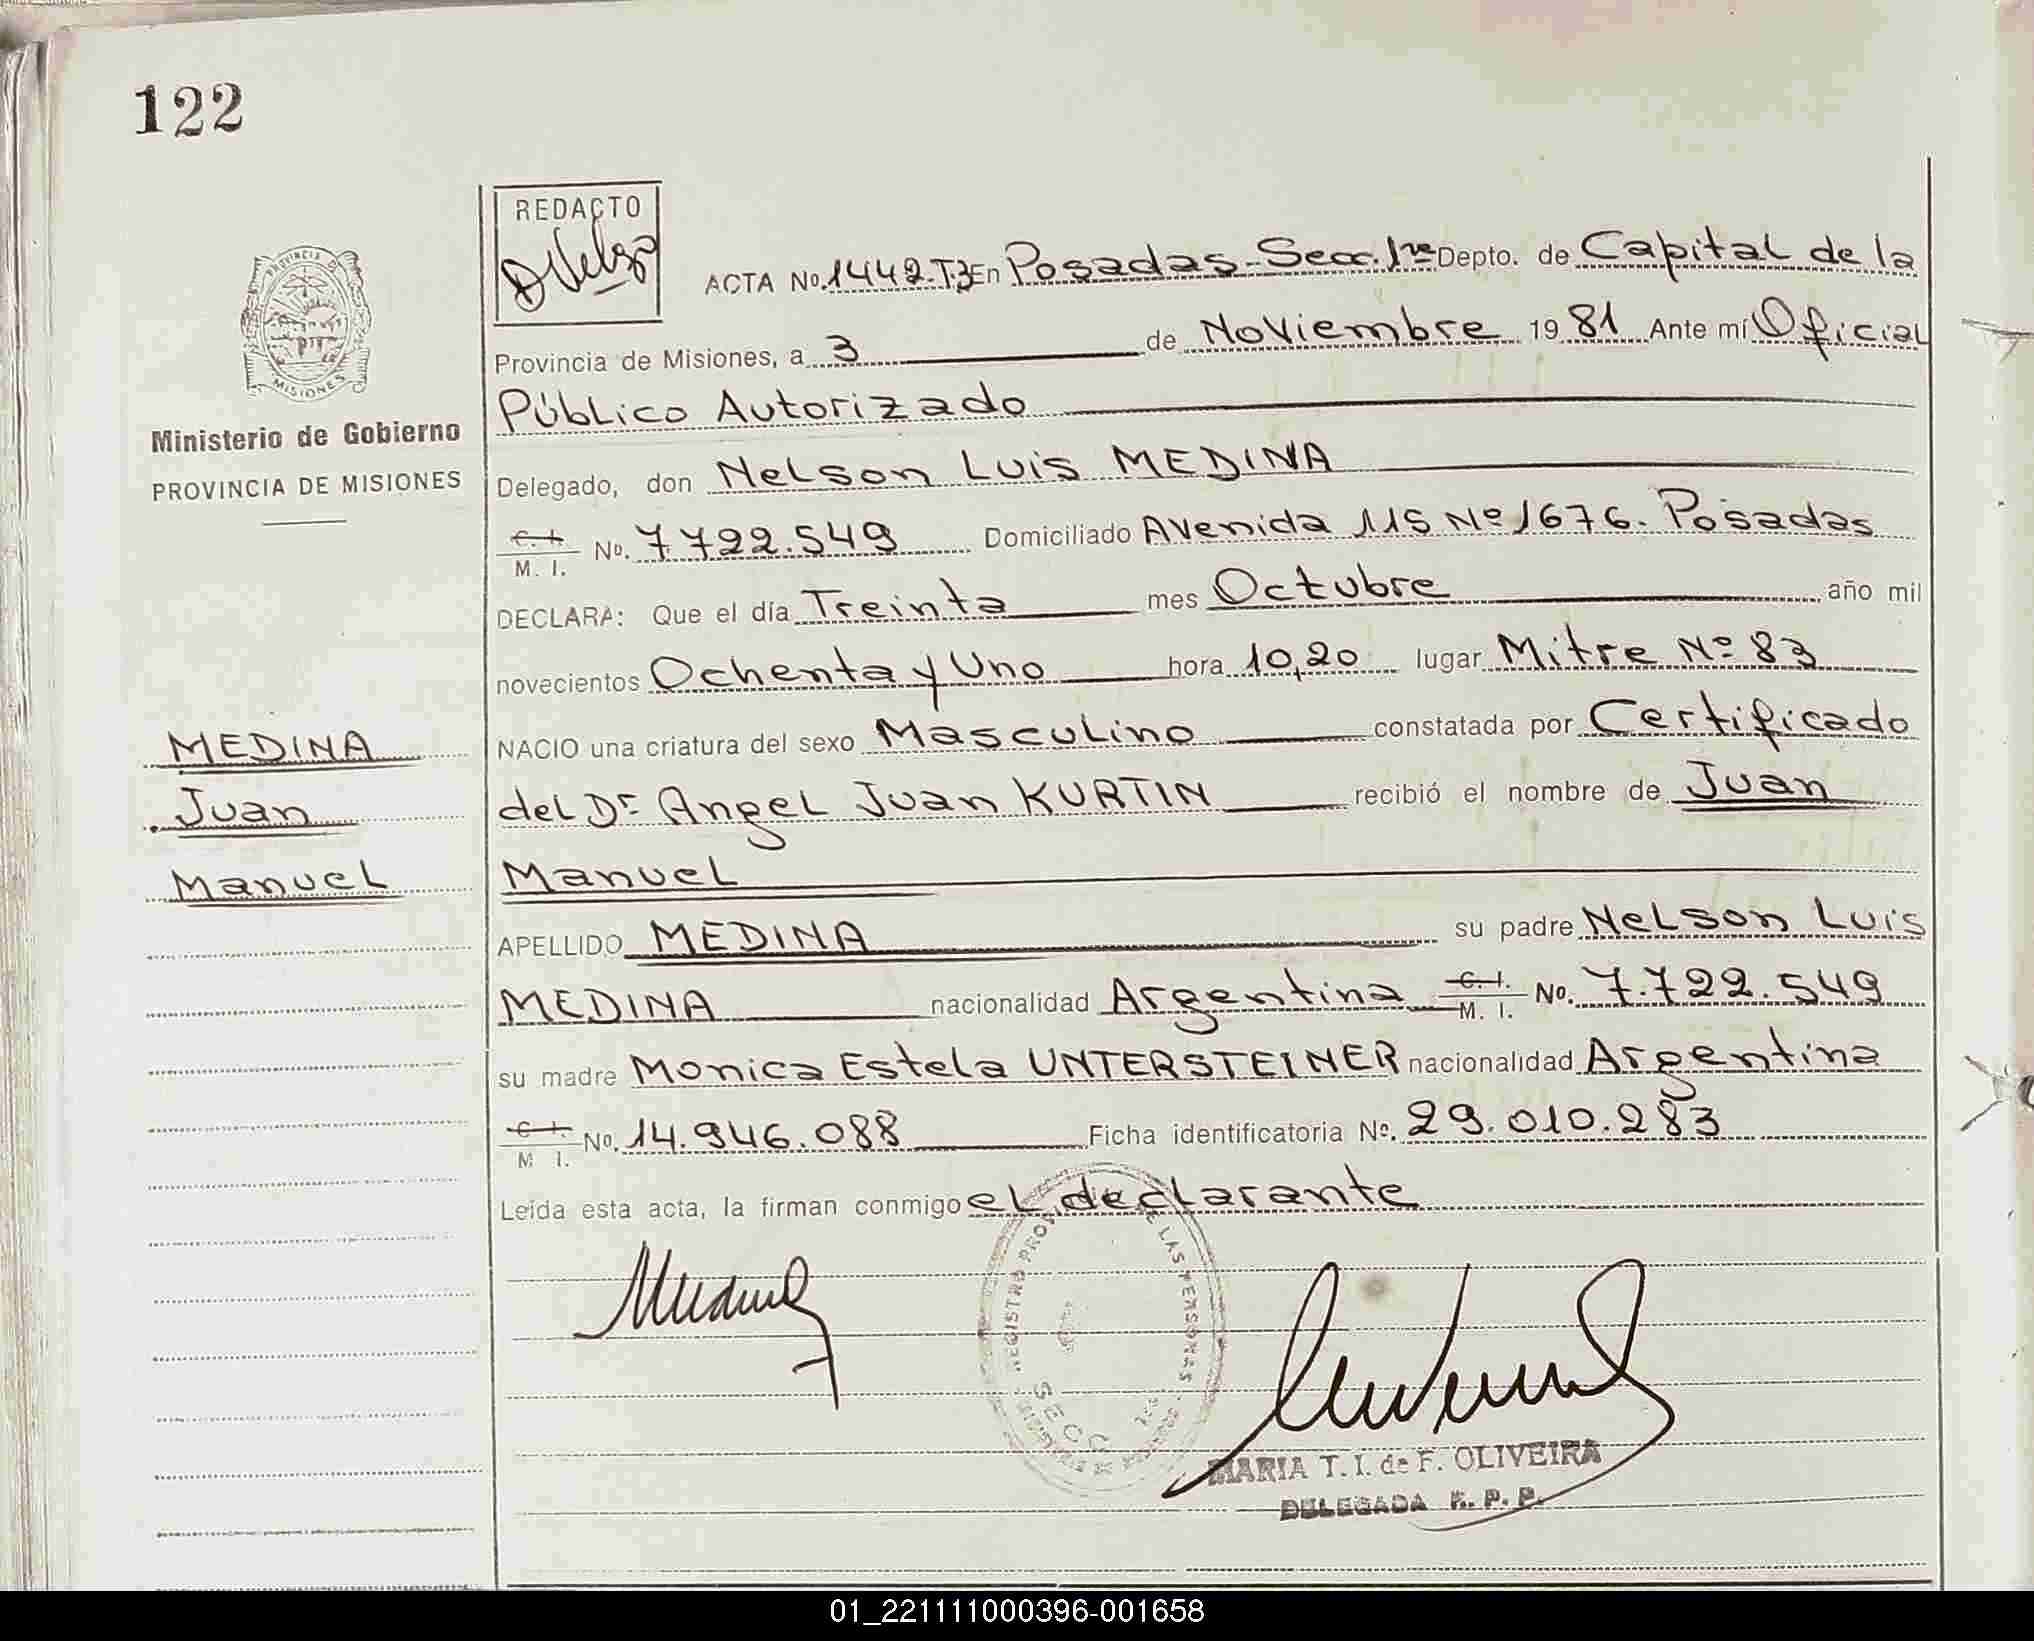 122
REDACTO
ACTA No. 1442.T3 En Posadas-Secc. 1ra Depto. de Capital de la
Provincia de Misiones, a 3 de Noviembre 1981 Ante mí Oficial
Público Autorizado
PROVINCIA DE
MISIONES
Ministerio de Gobierno
PROVINCIA DE MISIONES
Delegado, don Nelson Luis MEDINA
C. I.
M. I. No. 7.722.549 Domiciliado Avenida 115 Nº 1676. Posadas
DECLARA: Que el día Treinta mes Octubre año mil
novecientos Ochenta y Uno hora 10,20 lugar Mitre Nº 83
MEDINA
Juan
Manuel
NACIO una criatura del sexo Masculino constatada por Certificado
del Dr. Angel Juan KURTIN recibió el nombre de Juan
Manuel
APELLIDO MEDINA su padre Nelson Luis
MEDINA nacionalidad Argentina C. I. M. I. No. 7.722.549
su madre Monica Estela UNTERSTEINER nacionalidad Argentina
C. I.
M. I. No. 14.946.088 Ficha identificatoria No. 29.010.283
Leída esta acta, la firman conmigo el declarante
REGISTRO PROV DE LAS PERSONAS
SECC
MARIA T. I. de F. OLIVEIRA
DELEGADA R. P. P.
01_221111000396-001658